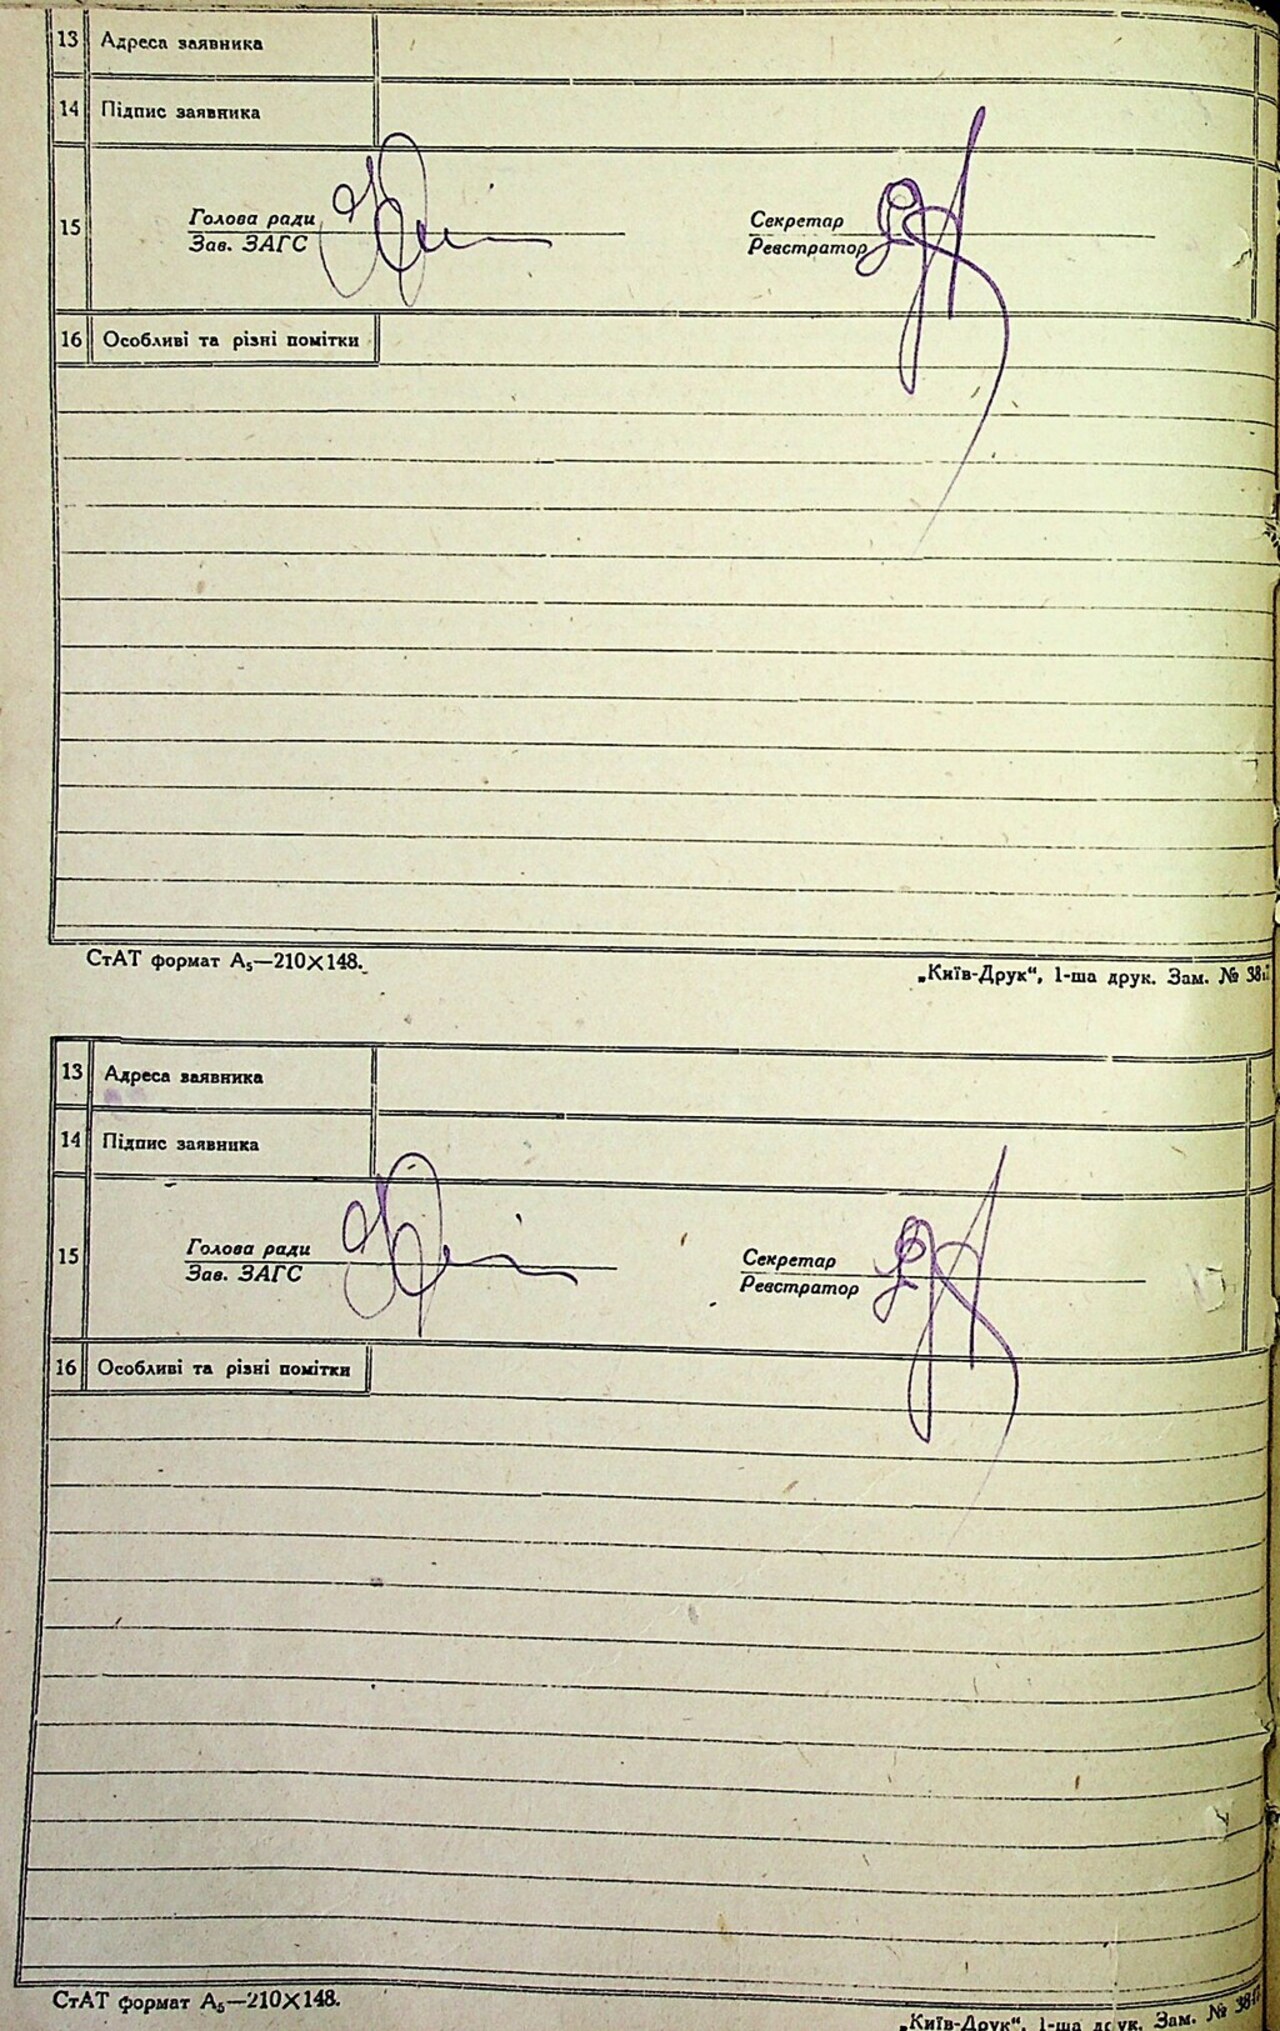 13 Адреса заявника
14 Підпис заявника
15 Голова ради Секретар
Зав. ЗАГС Реєстратор
16 Особливі та різні помітки
СтАТ формат А₅—210×148.
„Київ-Друк“, 1-ша друк. Зам. №
13 Адреса заявника
14 Підпис заявника
15 Голова ради Секретар
Зав. ЗАГС Реєстратор
16 Особливі та різні помітки
СтАТ формат А₅—210×148.
„Київ-Друк“, 1-ша друк. Зам. №